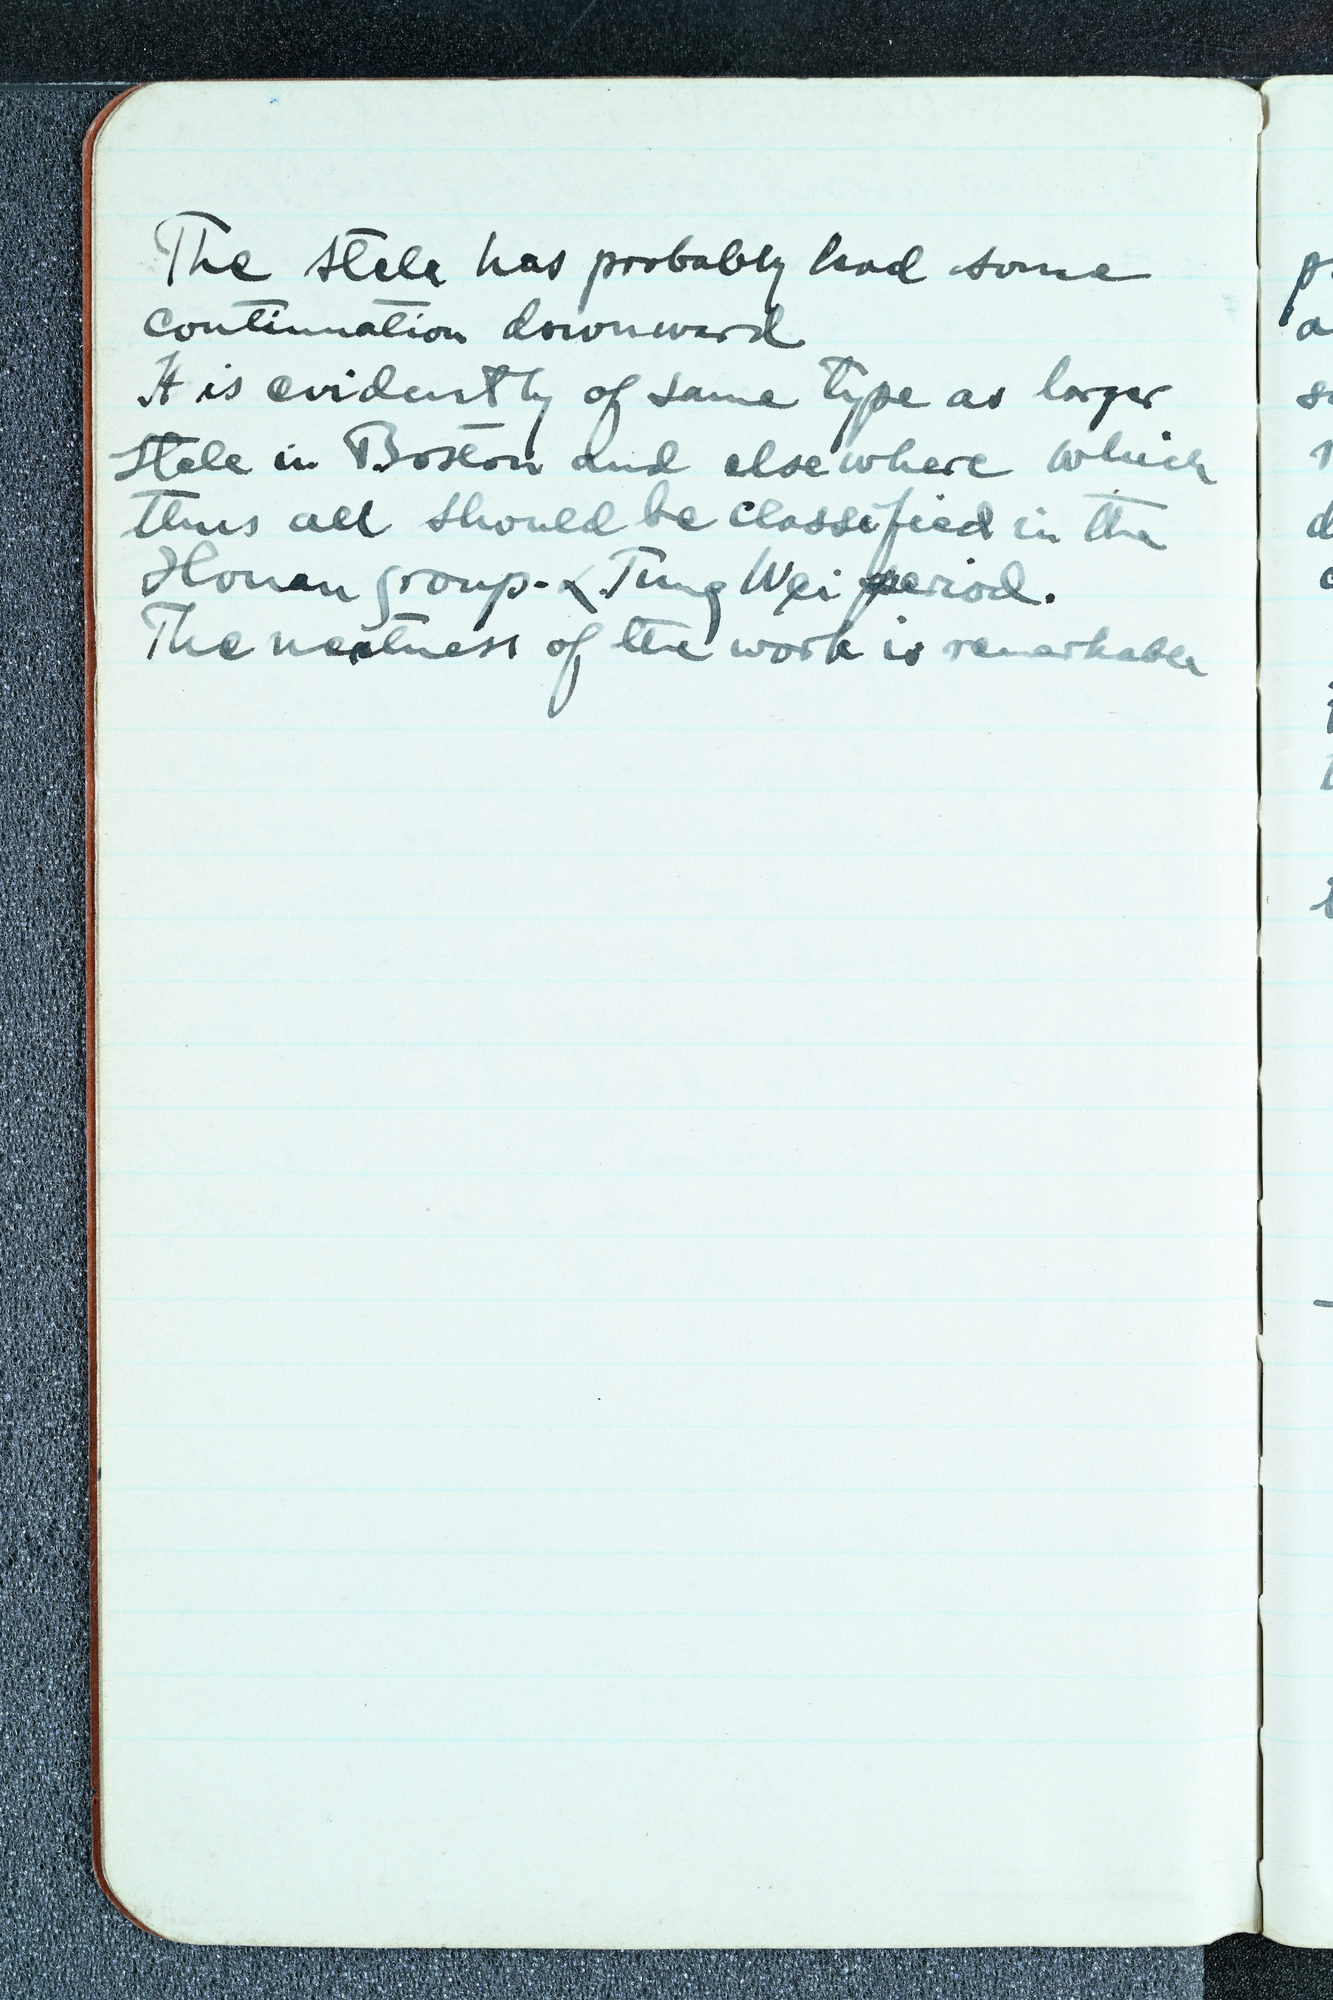 The stele has probably had some
continuation downward
It is evidently of same type as larger
stele in Boston and elsewhere which
thus all should be classified in the
Honan group - & Tung Wei period.
The neatness of the work is remarkable